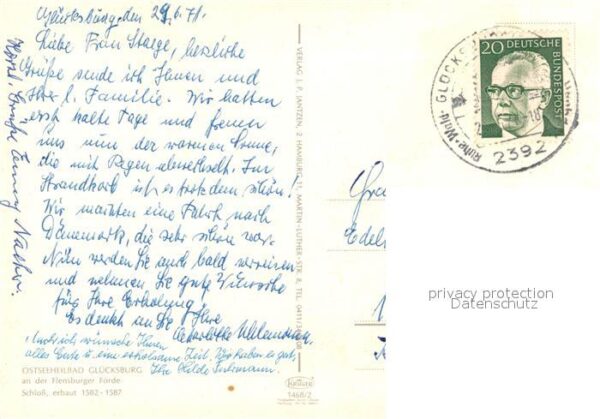 Glücksburg, den 29.6.71.
Liebe Frau Staege, herzliche
Grüße sende ich Ihnen und
Ihrer l. Familie. Wir hatten
erst kalte Tage und freuen
uns nun der warmen Sonne,
die mit Regen abwechselt. Im
Strandkorb ist es trotzdem schön!
Wir machten eine Fahrt nach
Dänemark, die sehr schön war.
Nun werden Sie auch bald verreisen
und nehmen Sie gute Wünsche
für Ihre Erholung!
Es denkt an Sie Ihre
Auch ich wünsche Ihnen
alles Gute u. eine erholsame Zeit.
Ihre Hilde
OSTSEEHEILBAD GLÜCKSBURG
an der Flensburger Förde
Schloß, erbaut 1582-1587
VERLAG J. P. JANTZEN, 2 HAMBURG 31, MARTIN-LUTHER-STR. 8, TEL. 0411/
KRÜGER
1468/2
20 DEUTSCHE
BUNDESPOST
GLÜCKSBURG
Ruhe-Wald-
2392
Edel
privacy protection
Datenschutz